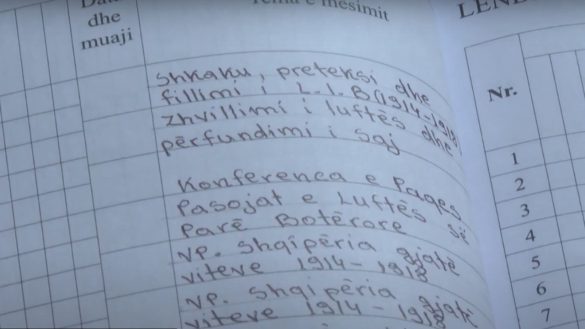 dhe
muaji
Tema e mësimit
Shkaku, preteksi dhe
fillimi i L.I.B(1914-1918)
zhvillimi i luftës dhe
përfundimi i saj
Konferenca e Paqes
Pasojat e Luftës së
Parë Botërore
vp. Shqipëria gjatë
viteve 1914-1918
vp. Shqipëria gjatë
viteve 1914-1918
Nr.
1
2
3
4
5
6
7